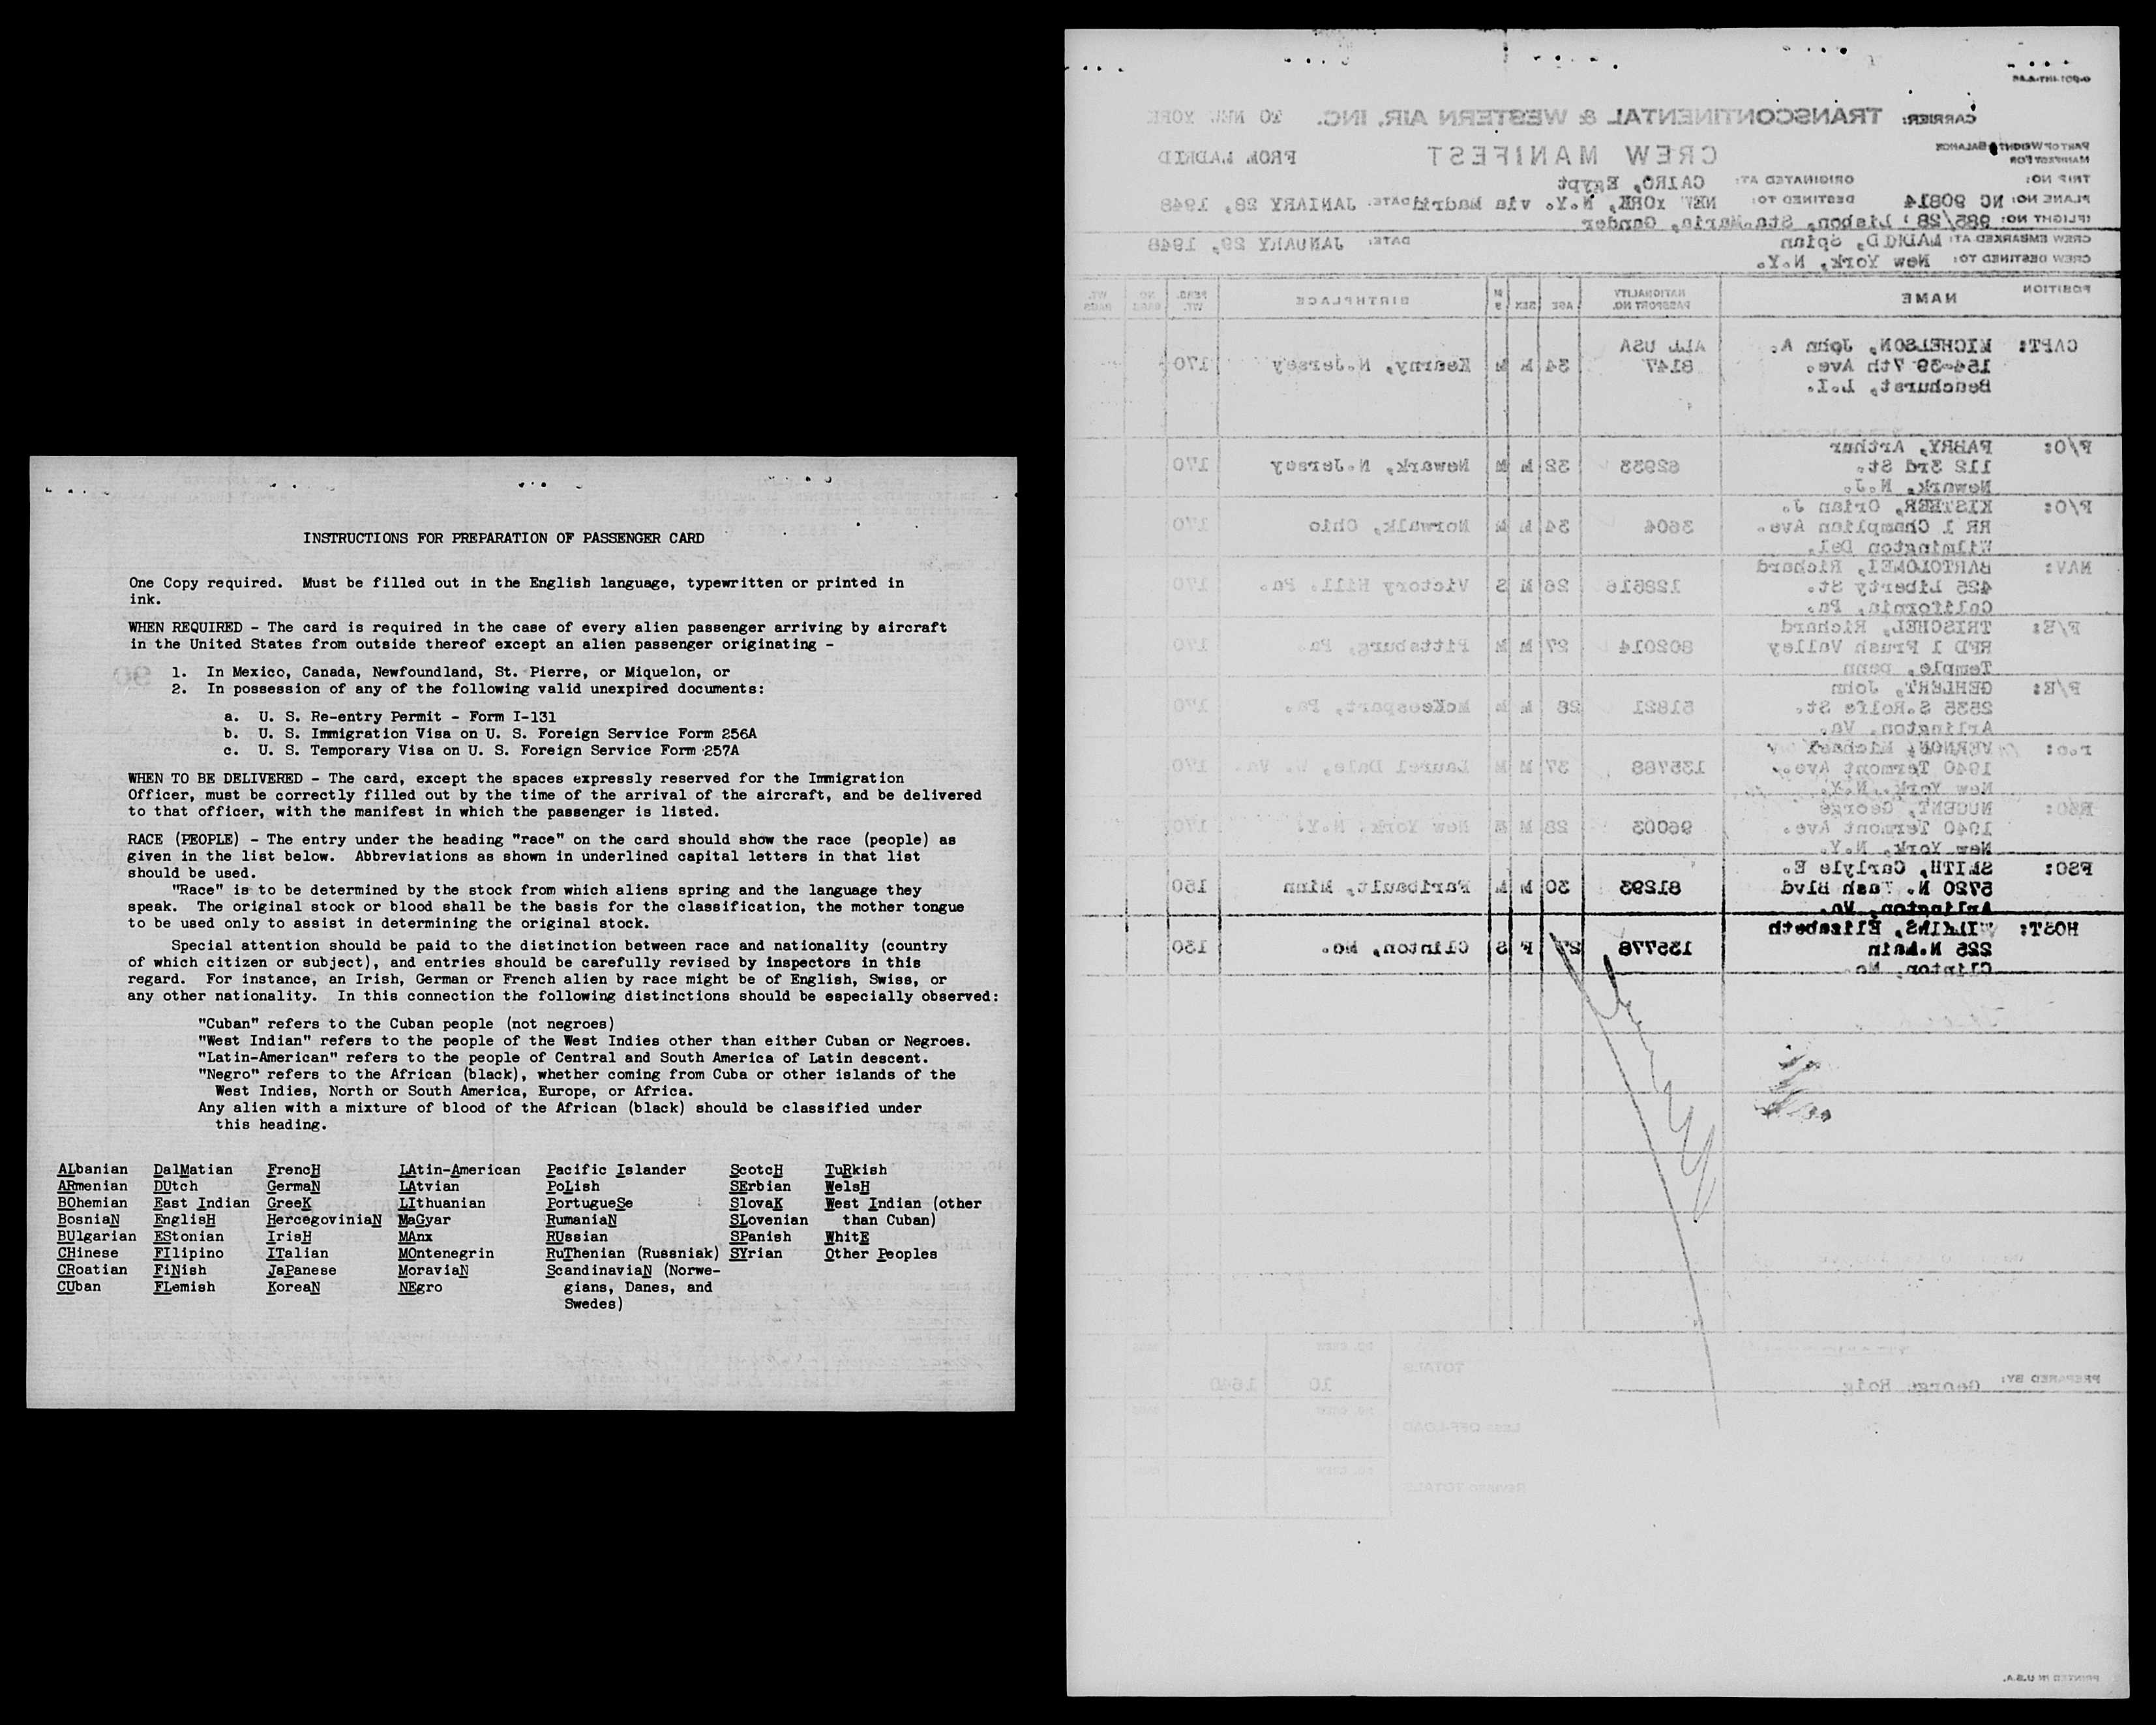 INSTRUCTIONS FOR PREPARATION OF PASSENGER CARD
One Copy required. Must be filled out in the English language, typewritten or printed in
ink.
WHEN REQUIRED - The card is required in the case of every alien passenger arriving by aircraft
in the United States from outside thereof except an alien passenger originating -
1. In Mexico, Canada, Newfoundland, St. Pierre, or Miquelon, or
2. In possession of any of the following valid unexpired documents:
a. U. S. Re-entry Permit - Form I-131
b. U. S. Immigration Visa on U. S. Foreign Service Form 256A
c. U. S. Temporary Visa on U. S. Foreign Service Form 257A
WHEN TO BE DELIVERED - The card, except the spaces expressly reserved for the Immigration
Officer, must be correctly filled out by the time of the arrival of the aircraft, and be delivered
to that officer, with the manifest in which the passenger is listed.
RACE (PEOPLE) - The entry under the heading "race" on the card should show the race (people) as
given in the list below. Abbreviations as shown in underlined capital letters in that list
should be used.
"Race" is to be determined by the stock from which aliens spring and the language they
speak. The original stock or blood shall be the basis for the classification, the mother tongue
to be used only to assist in determining the original stock.
Special attention should be paid to the distinction between race and nationality (country
of which citizen or subject), and entries should be carefully revised by inspectors in this
regard. For instance, an Irish, German or French alien by race might be of English, Swiss, or
any other nationality. In this connection the following distinctions should be especially observed:
"Cuban" refers to the Cuban people (not negroes)
"West Indian" refers to the people of the West Indies other than either Cuban or Negroes.
"Latin-American" refers to the people of Central and South America of Latin descent.
"Negro" refers to the African (black), whether coming from Cuba or other islands of the
West Indies, North or South America, Europe, or Africa.
Any alien with a mixture of blood of the African (black) should be classified under
this heading.
ALbanian DalMatian FrencH LAtin-American Pacific Islander ScotcH TuRkish
ARmenian DUtch GermaN LAtvian PoLish SErbian WelsH
BOhemian East Indian GreeK LIthuanian PortugueSe SlovaK West Indian (other
BosniaN EnglisH HercegoviniaN MaGyar RumaniaN SLovenian than Cuban)
BUlgarian EStonian IrisH MAnx RUssian SPanish WhitE
CHinese FIlipino ITalian MOntenegrin RuThenian (Russniak) SYrian Other Peoples
CRoatian FiNish JaPanese MoraviaN ScandinaviaN (Norwe-
CUban FLemish KoreaN NEgro gians, Danes, and
Swedes)
CARRIER: TRANSCONTINENTAL & WESTERN AIR, INC. TO NEW YORK
PART OF WEIGHT & BALANCE
MANIFEST FOR
CREW MANIFEST FROM MADRID
TRIP NO: ORIGINATED AT: CAIRO, Egypt
PLANE NO: NC 90814 DESTINED TO: NEW YORK, N.Y. via Madrid DATE: JANIARY 28, 1948
FLIGHT NO: 985/28 Lisbon, Sta.Maria, Gander
CREW EMBARKED AT: MADRID, Spian DATE: JANUARY 29, 1948
CREW DESTINED TO: New York, N.Y.
POSITION NAME NATIONALITY PASSPORT NO. AGE SEX M S BIRTHPLACE PERS. WT. NO BAGS WT. BAGS
CAPT: MICHELSON, John A. ALL USA
154-39 7th Ave. 8147 34 M M Kearny, N.Jersey 170
Beachurst, L.I.
F/O: FABRY, Arthur
112 3rd St. 62933 32 M M Newark, N.Jersey 170
Newark, N.J.
F/O: KISTLER, Orian J.
RR 1 Champlian Ave. 3604 34 M M Norwalk, Ohio 170
Wilmington Del.
NAV: BARTOLOMEI, Richard
425 Liberty St. 128516 26 M S Victory Hill. Pa. 170
California, Pa.
F/E: TRISCHEL, Richard
RFD 1 Frush Valley 802014 27 M M Pittsburg, Pa. 170
Temple, penn
F/E: GEHLERT, John
2535 S.Rolfe St. 51821 28 M M McKeesport, Pa. 170
Arlington, Va.
r.o: VERNON, Michael
1940 Termont Ave. 135768 37 M M Laurel Dale, W. Va. 170
New York, N.Y.
RSO: NUGENT, George
1940 Termont Ave. 96003 28 M New York, N.Y. 170
New York, N.Y.
FSO: SMITH, Carlyle E.
5720 N. Wash Blvd 81293 30 M M Faribault, Minn 150
Arlington, Va.
HOST: WILKINS, Elizabeth
225 N.Main 135778 27 F S Clinton, Mo. 130
Clinton, Mo.
TOTALS NO. CREW 10 1640 BAGS
PREPARED BY: George Roig
Less OFF-LOAD NO. CREW BAGS
Revised TOTALS NO. CREW BAGS
PRINTED IN U.S.A.